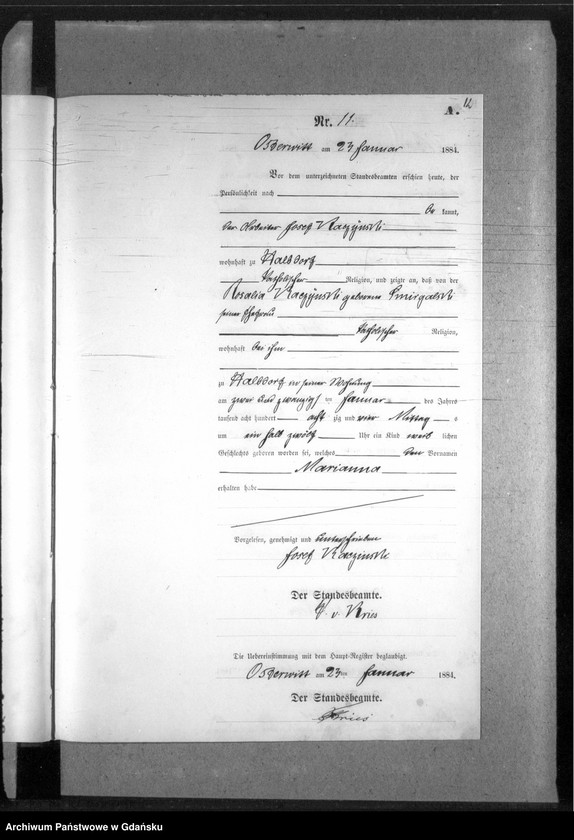 12
A.
Nr. 11.
Osterwitt am 23 Januar 1884.
Vor dem unterzeichneten Standesbeamten erschien heute, der
Persönlichkeit nach
be kannt,
der Arbeiter Josef Raczynski
wohnhaft zu Kalsdorf
katholischer Religion, und zeigte an, daß von der
Rosalia Raczynski geborene
seiner Ehefrau
katholischer Religion,
wohnhaft bei ihm
zu Kalsdorf in seiner Wohnung
am zwei und zwanzig sten Januar des Jahres
tausend acht hundert acht zig und vier Mittag s
um ein halb zwölf Uhr ein Kind weib lichen
Geschlechts geboren worden sei, welches den Vornamen
Marianna
erhalten habe
Vorgelesen, genehmigt und unterschrieben
Josef Raczinski
Der Standesbeamte.
v. Kries
Die Uebereinstimmung mit dem Haupt-Register beglaubigt.
Osterwitt am 23ten Januar 1884.
Der Standesbeamte.
Kries
Archiwum Państwowe w Gdańsku